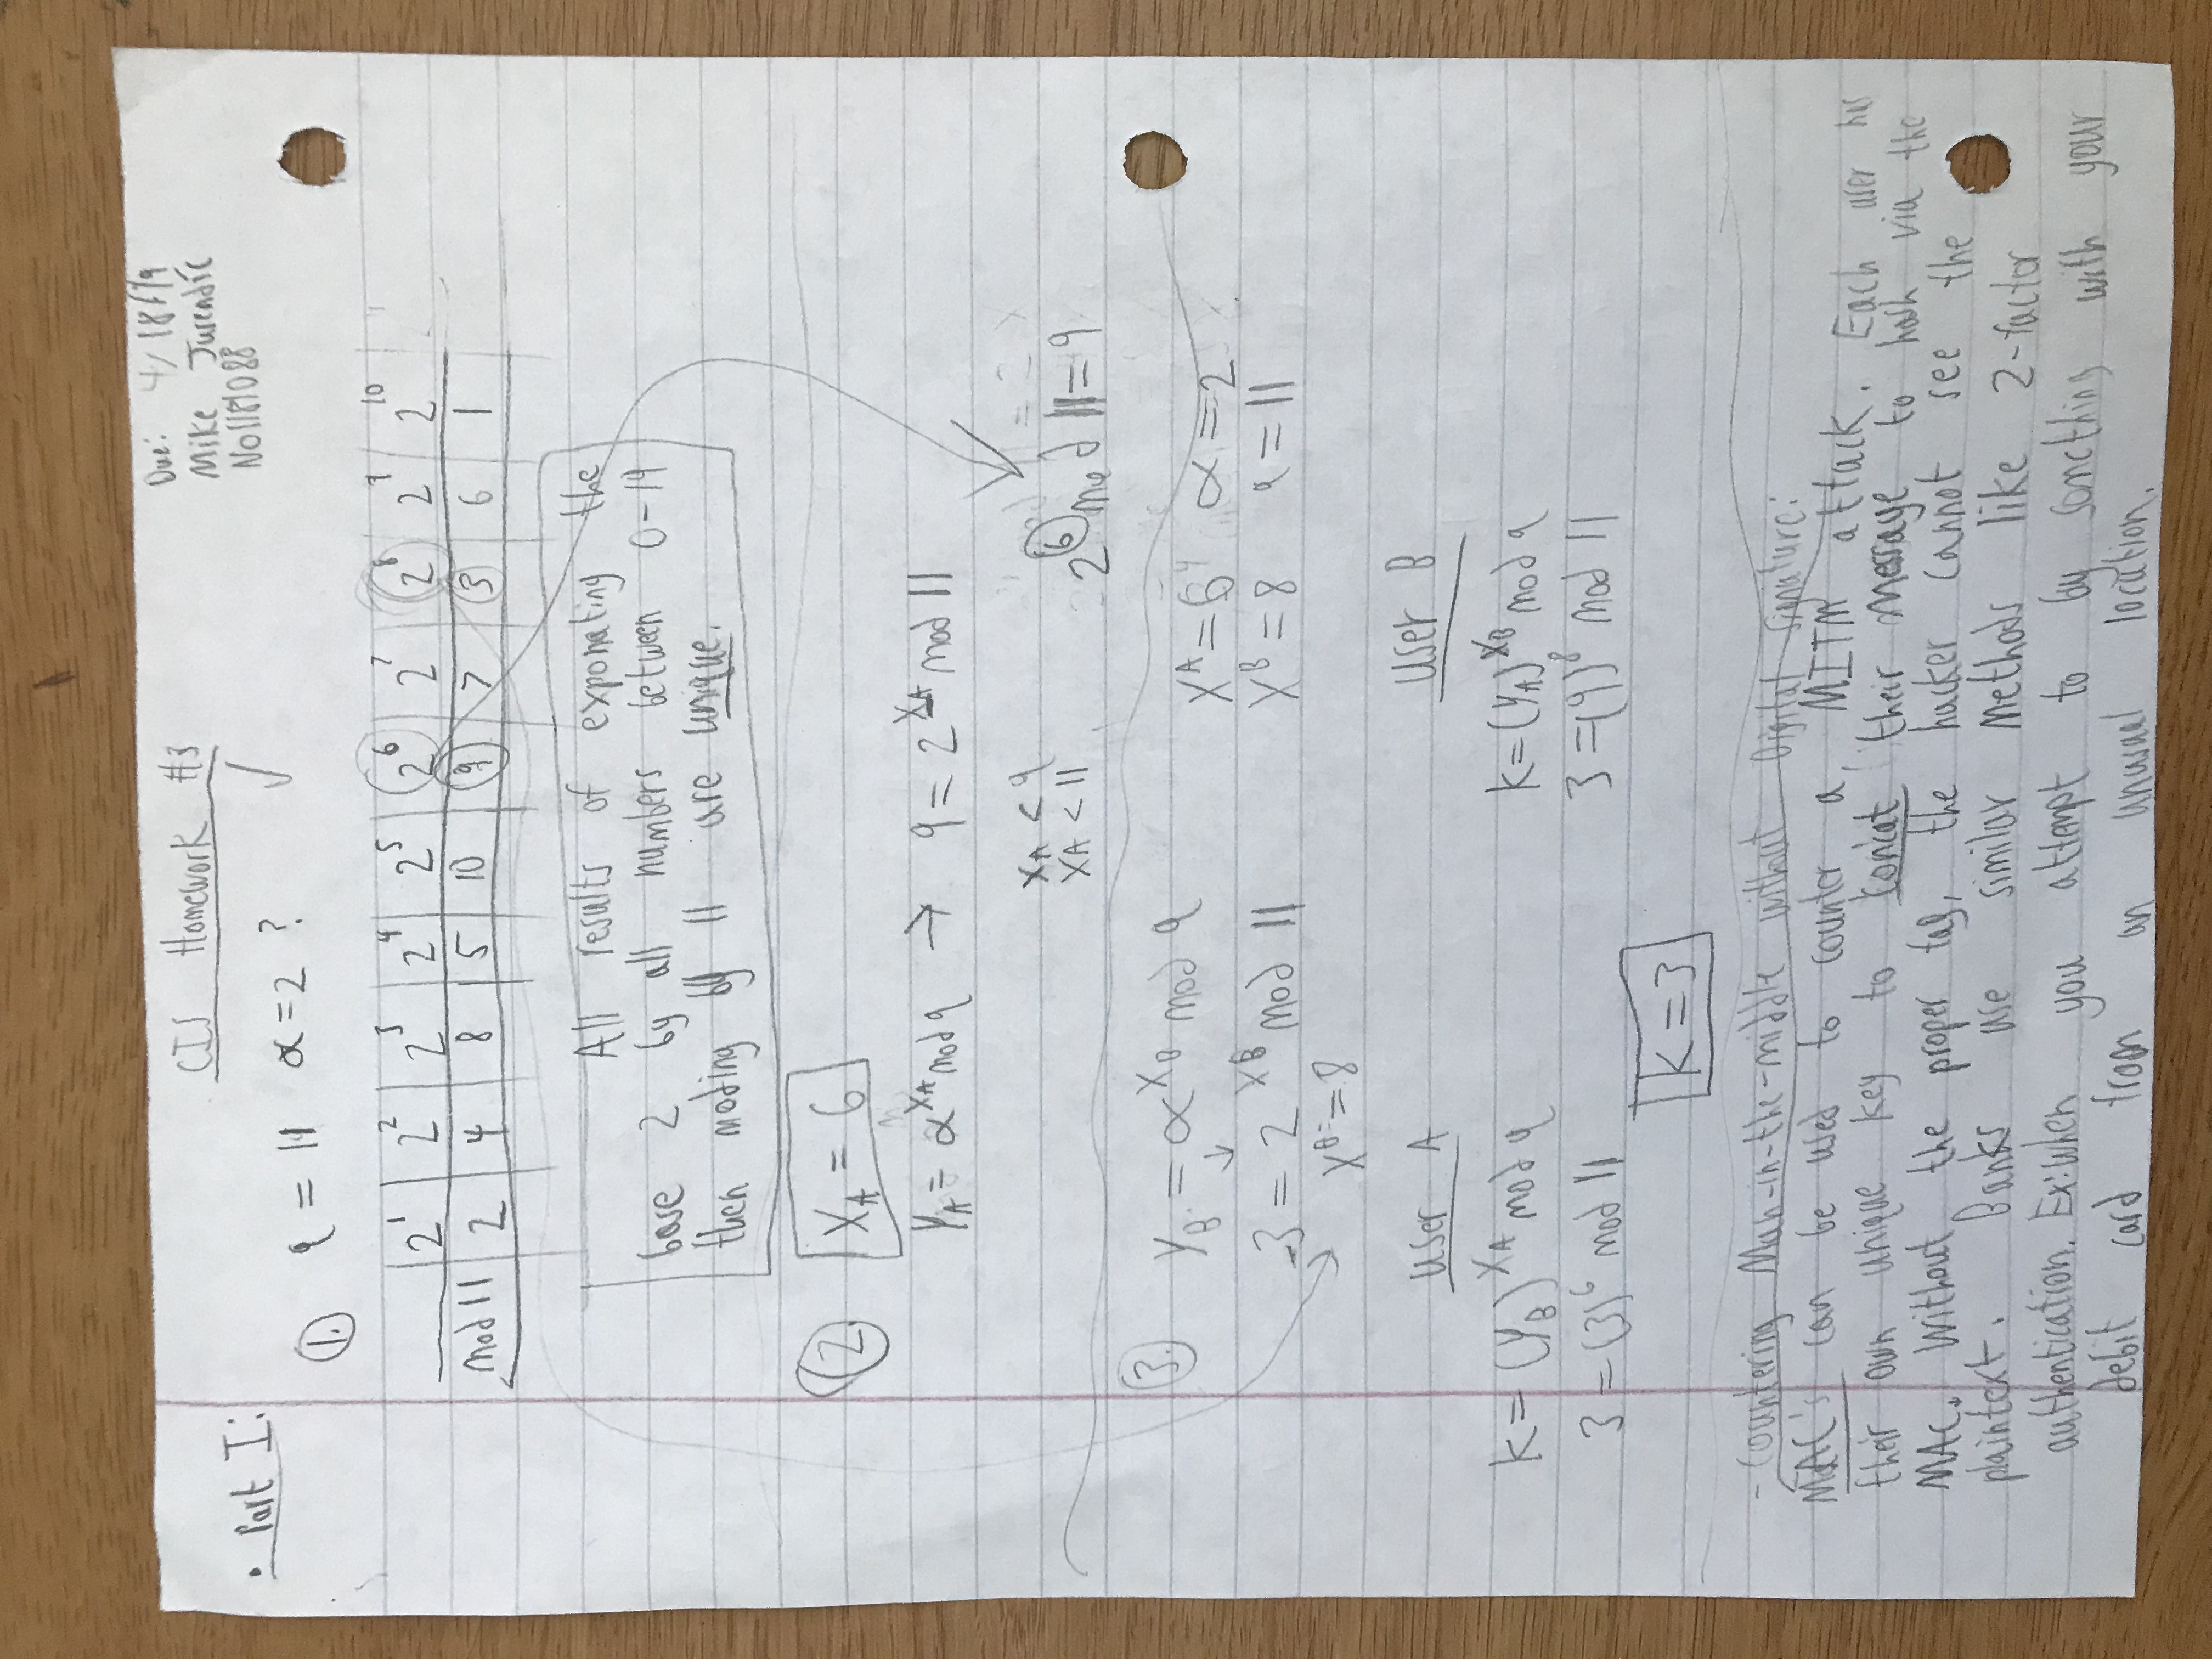 CIS Homework #3
Due: 4/18/19
Mike Jurendic
• Part I:
1. q = 11 α = 2 ? ✓
2^1 | 2^2 | 2^3 | 2^4 | 2^5 | 2^6 | 2^7 | 2^8 | 2^9 | 2^10
mod 11 | 2 | 4 | 8 | 5 | 10 | 9 | 7 | 3 | 6 | 1
All results of exponating the
base 2 by all numbers between 0-
then moding by 11 are unique.
2. X_A = 6
Y_A = α^X_A mod q → 9 = 2^X_A mod 11
X_A < q
X_A < 11
2^6 mod 11 = 9
3. Y_B = α^X_B mod q
X^A = 6 α = 2
↓
3 = 2^X_B mod 11
X^B = 8 q = 11
X^B = 8
User A
User B
K = (Y_B)^X_A mod q
K = (Y_A)^X_B mod q
3 = (3)^6 mod 11
3 = (9)^8 mod 11
K = 3
- Countering Man-in-the-middle without Digital Signature:
MAC's can be used to counter a MITM attack. Each user has
their own unique key to concat their message to hash via the
MAC. Without the proper tag, the hacker cannot see the
plaintext. Banks use similar methods like 2-factor
authentication. Ex: when you attempt to by something with your
debit card from an unusual location.